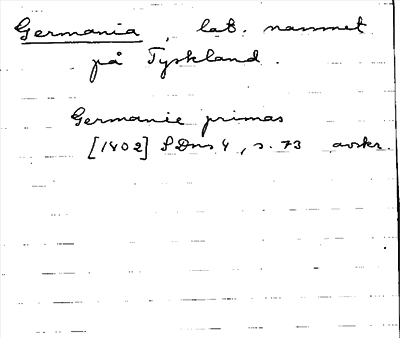 Germania, lat. namnet
på Tyskland.
Germanie primas
[1402] SDns 4, s. 73 avskr.